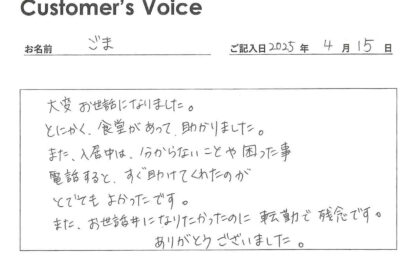 Customer's Voice
お名前 ごま ご記入日 2025 年 4 月 15 日
大変 お世話になりました。
とにかく、食堂があって、助かりました。
また、入居中は、分からないことや困った事
電話すると、すぐ助けてくれたのが
とてもよかったです。
また、お世話になりたかったのに 転勤で 残念です。
ありがとうございました。